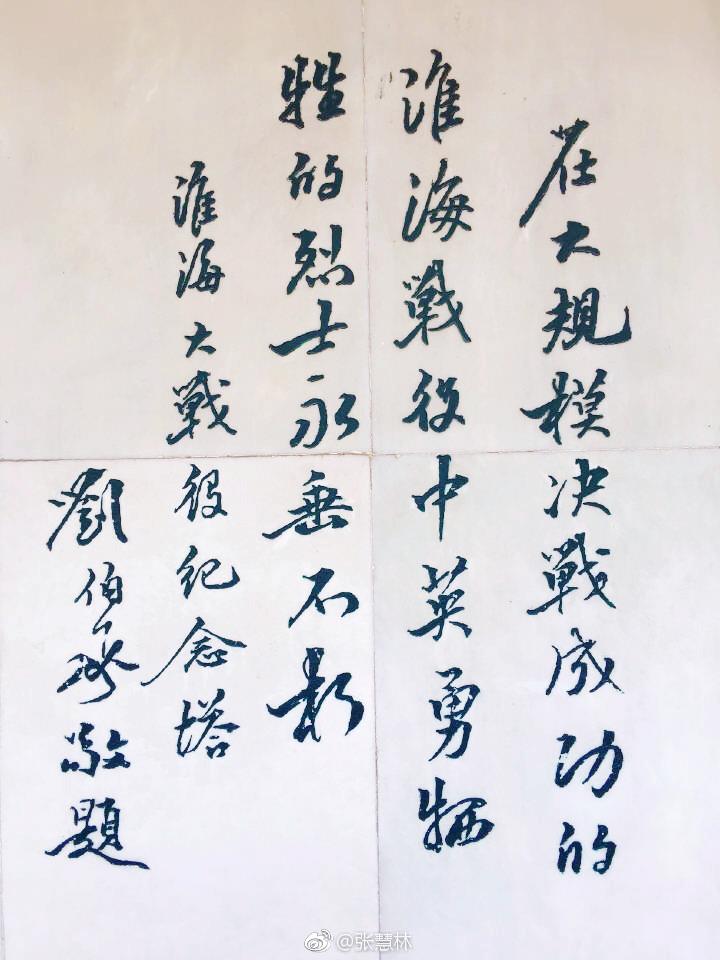 在大規模決戰成功的
淮海戰役中英勇牺
牲的烈士永垂不朽
淮海大戰役紀念塔
劉伯承敬題
@张慧林